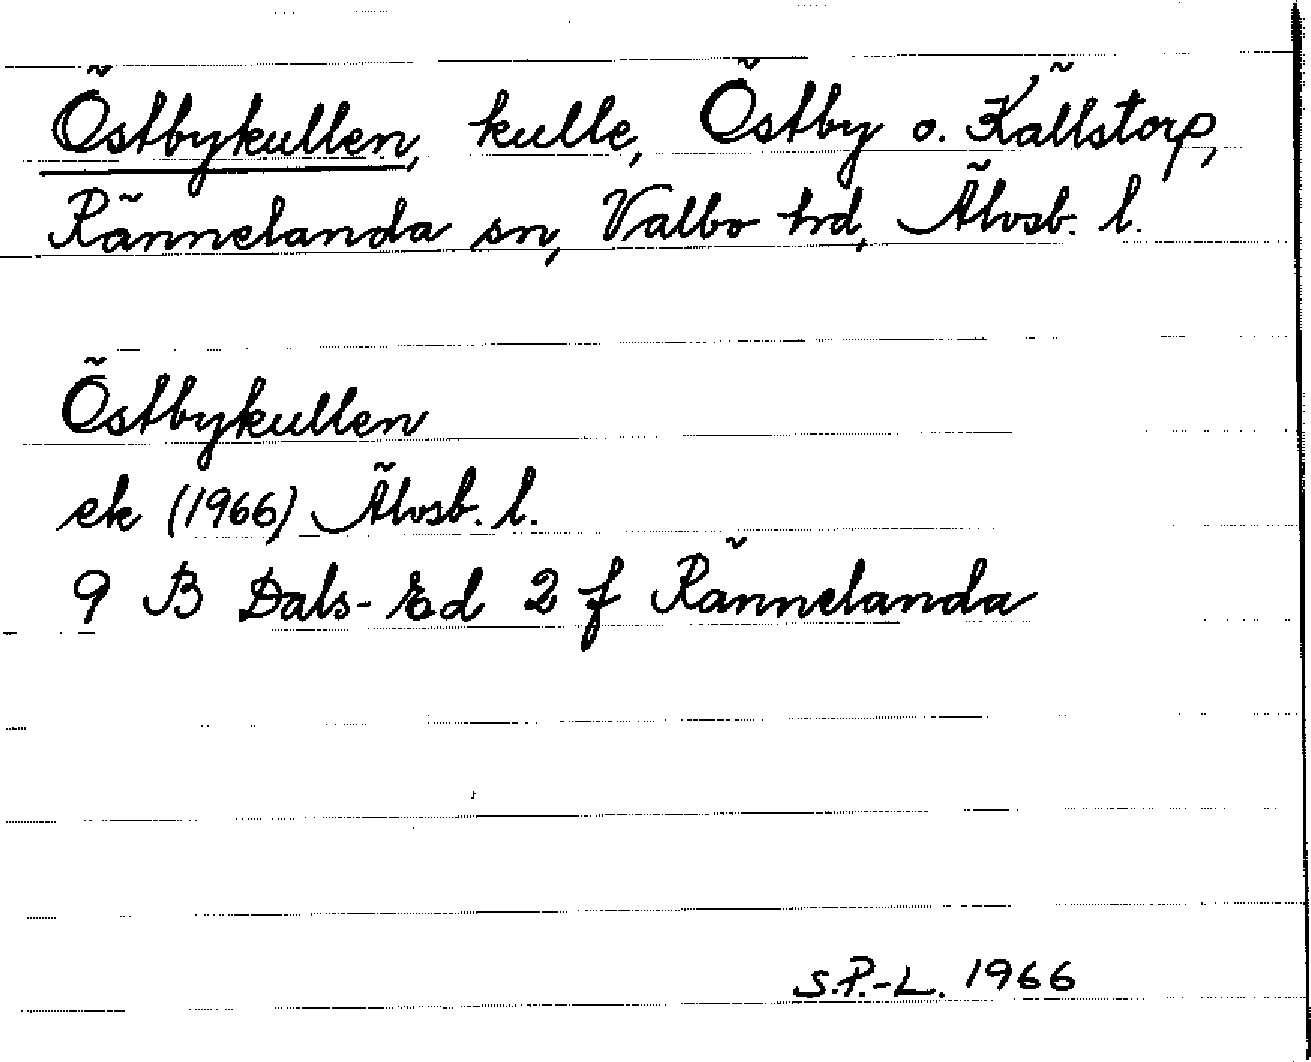 Östbykullen, kulle, Östby o. Källstorp,
Rännelanda sn, Valbo hd, Älvsb. l.
Östbykullen
ek (1966) Älvsb. l.
9 B Dals-Ed 2 f Rännelanda
S.P.-L. 1966